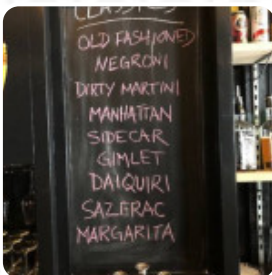 CLASSICS
OLD FASHIONED
NEGRONI
DIRTY MARTINI
MANHATTAN
SIDECAR
GIMLET
DAIQUIRI
SAZERAC
MARGARITA